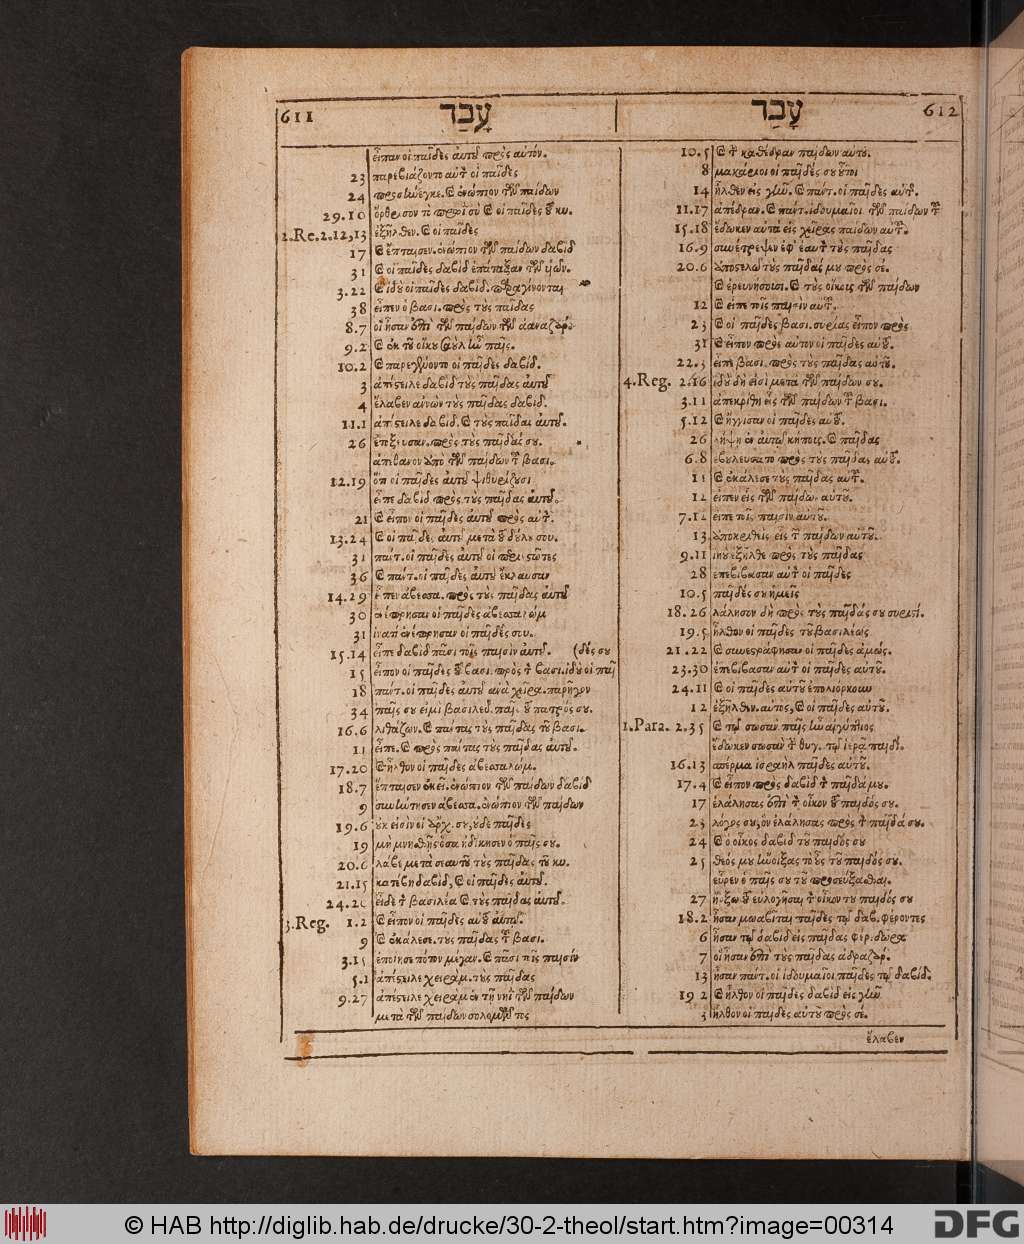 611 עָבַד
עָבַד 612
εἶπαν οἱ παῖδες αὐτοῦ πρὸς αὐτόν.
23 παρεβιάζοντο αὐτ. οἱ παῖδες
24 προσήνεγκε. καὶ ἐνώπιον τῶν παίδων
29.10 ὄρθρισον τὸ πρωῒ σὺ καὶ οἱ παῖδες τοῦ κυ.
2.Re.2.12,13 ἐξῆλθεν. καὶ οἱ παῖδες
17 καὶ ἔπταισεν. ἐνώπιον τῶν παίδων δαβὶδ
31 καὶ οἱ παῖδες δαβὶδ ἐπάταξαν τῶν υἱῶν.
3.22 καὶ ἰδοὺ οἱ παῖδες δαβίδ. παραγίνονται
38 εἶπεν ὁ βασι. πρὸς τοὺς παῖδας
8.7 οἳ ἦσαν ἐπὶ τῶν παίδων τῶν ἀδραζαάρ.
9.2 καὶ ἐκ τοῦ οἴκου σαοὺλ ἦν παῖς.
10.2 καὶ παρεγένοντο οἱ παῖδες δαβίδ.
3 ἀπέστειλε δαβὶδ τοὺς παῖδας αὐτοῦ
4 ἔλαβεν ἀννὼν τοὺς παῖδας δαβίδ.
11.1 ἀπέστειλε δαβίδ. καὶ τοὺς παῖδας αὐτοῦ.
26 πρὸς τοὺς παῖδάς σου.
ἀπέθανον ἀπὸ τῶν παίδων τοῦ βασι.
12.19 ὅτι οἱ παῖδες αὐτοῦ ψιθυρίζουσι
εἶπε δαβὶδ πρὸς τοὺς παῖδας αὐτοῦ.
21 καὶ εἶπον οἱ παῖδες αὐτοῦ πρὸς αὐτ.
13.24 καὶ οἱ παῖδες αὐτοῦ μετὰ τοῦ δούλου σου.
31 πάντ. οἱ παῖδες αὐτοῦ οἱ περιεστῶτες
36 καὶ πάντ. οἱ παῖδες αὐτοῦ ἔκλαυσαν
14.29 εἶπεν ἀβεσσα. πρὸς τοὺς παῖδας αὐτοῦ
30 ἐνέπρησαν οἱ παῖδες ἀβεσσαλώμ
31 ἱνατί ἐνέπρησαν οἱ παῖδές σου.
15.14 εἶπε δαβὶδ πᾶσι τοῖς παισὶν αὐτοῦ. (δές σου
15 εἶπον οἱ παῖδες τοῦ βασι. πρὸς τ. βασι. ἰδοὺ οἱ παῖ
18 πάντ. οἱ παῖδες αὐτοῦ ἀνὰ χεῖρα. παρῆγον
34 παῖς σου εἰμὶ βασιλεῦ. παῖ. τοῦ πατρός σου.
16.6 λιθάζων. καὶ πάντας τοὺς παῖδας τοῦ βασι.
11 εἶπε. καὶ πρὸς πάντας τοὺς παῖδας αὐτοῦ.
17.20 καὶ ἦλθον οἱ παῖδες ἀβεσσαλώμ.
18.7 ἔπταισεν ἐκεῖ. ἐνώπιον τῶν παίδων δαβίδ
9 συνήντησεν ἀβεσσα. ἐνώπιον τῶν παίδων
19.6 οὐκ εἰσὶν οἱ ἄρχ. σου, οὐδὲ παῖδες
19 μὴ μνησθῇς ὅσα ἠδίκησεν ὁ παῖς σου.
20.6 λάβε μετὰ σεαυτοῦ τοὺς παῖδας τοῦ κυ.
21.15 κατέβη δαβίδ, καὶ οἱ παῖδες αὐτοῦ.
24.20 εἶδε τ. βασιλέα καὶ τοὺς παῖδας αὐτοῦ.
3.Reg. 1.2 καὶ εἶπον οἱ παῖδες αὐτοῦ αὐτοῦ.
9 καὶ ἐκάλεσε. τοὺς παῖδας τοῦ βασι.
3.15 ἐποίησε πότον μέγαν. καὶ πᾶσι τοῖς παισὶν
5.1 ἀπέστειλε χειράμ. τοὺς παῖδας
9.27 ἀπέστειλε χειρὰμ ἐν τῇ νηῒ τῶν παίδων
μετὰ τῶν παίδων σολομῶντος
10.5 καὶ τ. καθέδραν παίδων αὐτοῦ.
8 μακάριοι οἱ παῖδές σου οὗτοι
14 ἦλθεν εἰς γῆν. καὶ πάντ. οἱ παῖδες αὐτ.
11.17 ἀπέδραν. καὶ πάντ. ἰδουμαῖοι τῶν παίδων τ.
15.18 ἔδωκεν αὐτὰ εἰς χεῖρας παίδων αὐτ.
16.9 συνέτρεψεν ἐφ᾽ ἑαυτ. τοὺς παῖδας
20.6 ἀποστελῶ τοὺς παῖδάς μου πρὸς σε.
καὶ ἐρευνήσουσι. καὶ τοὺς οἴκους τῶν παίδων
12 καὶ εἶπε τοῖς παισὶν αὐτ.
23 καὶ οἱ παῖδες βασι. συρίας εἶπον πρὸς
31 καὶ εἶπον πρὸς αὐτὸν οἱ παῖδες αὐτοῦ.
22.3 εἶπε βασι. πρὸς τοὺς παῖδας αὐτοῦ.
4.Reg. 2.16 ἰδοὺ δὴ εἰσὶ μετὰ τῶν παίδων σου.
3.11 ἀπεκρίθη εἷς τῶν παίδων τοῦ βασι.
5.12 καὶ ἤγγισαν οἱ παῖδες αὐτοῦ.
26 κήπους. καὶ παῖδας
6.8 ἐβουλεύσατο πρὸς τοὺς παῖδας αὐτοῦ.
11 καὶ ἐκάλεσε τοὺς παῖδας αὐτ.
12 εἶπεν εἷς τῶν παίδων αὐτοῦ.
7.12 εἶπε τοῖς παισὶν αὐτοῦ.
13 ἀποκριθεὶς εἷς τ. παίδων αὐτοῦ.
9.11 ἰηοὺ ἐξῆλθε πρὸς τοὺς παῖδας
28 ἐπεβίβασαν αὐτ. οἱ παῖδες
10.5 παῖδές σου ἡμεῖς
18.26 λάλησον δὴ πρὸς τοὺς παῖδάς σου συριστί.
19.5 ἦλθον οἱ παῖδες τοῦ βασιλέως
21.22 καὶ συνεστράφησαν οἱ παῖδες ἀμώς.
23.30 ἐπεβίβασαν αὐτ. οἱ παῖδες αὐτοῦ.
24.11 καὶ οἱ παῖδες αὐτοῦ ἐπολιόρκουν
12 ἐξῆλθεν. αὐτὸς, καὶ οἱ παῖδες αὐτοῦ.
1.Para. 2.35 καὶ τῷ σωσὰν παῖς ἦν αἰγύπτιος
ἔδωκεν σωσὰν τ. θυγ. τῷ ἱερᾶ παιδί.
16.13 σπέρμα ἰσραὴλ παῖδες αὐτοῦ.
17.4 καὶ εἶπον πρὸς δαβὶδ τ. παῖδά μου.
17 ἐλάλησας ἐπὶ τ. οἶκον τοῦ παιδός σου.
23 λόγος σου, ὃν ἐλάλησας πρὸς τ. παῖδά σου.
24 καὶ ὁ οἶκος δαβὶδ τοῦ παιδός σου
25 θεός μου ἤνοιξας τὸ οὖς τοῦ παιδός σου.
εὗρεν ὁ παῖς σου τοῦ προσεύξασθαι.
27 ἤρξω τοῦ εὐλογῆσαι τ. οἶκον τοῦ παιδός σου
18.2 ἦσαν μωαβῖται παῖδες τῷ δαβ. φέροντες
6 ἦσαν τῷ δαβὶδ εἰς παῖδας φέρ. δῶρα
7 οἳ ἦσαν ἐπὶ τοὺς παῖδας ἀδραζάρ.
13 ἦσαν πάντ. οἱ ἰδουμαῖοι παῖδες τῷ δαβίδ.
19 2 καὶ ἦλθον οἱ παῖδες δαβὶδ εἰς γῆν
3 ἦλθον οἱ παῖδες αὐτοῦ πρὸς σε.
ἔλαβεν
© HAB http://diglib.hab.de/drucke/30-2-theol/start.htm?image=00314
DFG